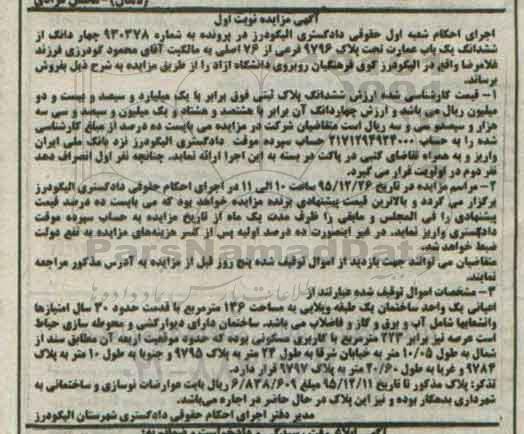 آگهی مزایده نوبت اول
اجرای احکام شعبه اول حقوقی دادگستری الیگودرز در پرونده به شماره ۹۳۰۳۷۸ چهار دانگ از
ششدانگ یک باب عمارت تحت پلاک ۹۷۹۶ فرعی از ۷۶ اصلی به مالکیت آقای محمود گودرزی فرزند
غلامرضا واقع در الیگودرز کوی فرهنگیان روبروی دانشگاه آزاد را از طریق مزایده به شرح ذیل بفروش
برساند.
۱- قیمت کارشناسی شده ارزش ششدانگ پلاک ثبتی فوق برابر با یک میلیارد و سیصد و بیست و دو
میلیون ریال می باشد و ارزش چهاردانگ آن برابر با هشتصد و هشتاد و یک میلیون و سیصد و سی سه
هزار و سیصد و سی و سه ریال است متقاضیان شرکت در مزایده می بایست ده درصد از مبلغ کارشناسی
شده را به حساب ۲۱۷۱۲۹۴۹۲۳۰۰۰ حساب سپرده موقت دادگستری الیگودرز نزد بانک ملی ایران
واریز و به همراه تقاضای کتبی در پاکت در بسته به این اجرا ارائه نماید. چنانچه نفر اول انصراف دهد
نفر دوم در اولویت قرار می گیرد.
۲- مراسم مزایده در تاریخ ۹۵/۱۲/۲۶ ساعت ۱۰ الی ۱۱ در اجرای احکام حقوقی دادگستری الیگودرز
برگزار می گردد و بالاترین قیمت پیشنهادی برنده مزایده خواهد بود که می بایست ده درصد قیمت
پیشنهادی را فی المجلس و مابقی را ظرف مدت یک ماه از تاریخ مزایده به حساب سپرده موقت
دادگستری واریز نماید. در غیر اینصورت ده درصد اولیه پس از کسر هزینه‌های مزایده به نفع دولت
ضبط خواهد شد.
متقاضیان می توانند جهت بازدید از اموال توقیف شده پنج روز قبل از مزایده به آدرس مذکور مراجعه
نمایند.
۳- مشخصات اموال توقیف شده عبارتند از
اعیانی یک واحد ساختمان یک طبقه ویلایی به مساحت ۱۳۶ مترمربع با قدمت حدود ۳۰ سال امتیازها
وانشعابها شامل آب و برق و گاز و فاضلاب می باشد. ساختمان دارای دیوارکشی و محوطه سازی حیاط
است عرصه نیز برابر ۲۲۳ مترمربع با کاربری مسکونی بوده که حدود موقعیت اربعه آن مطابق سند از
شمال به طول ۱۰/۰۵ متر به خیابان شرقا به طول ۲۴ متر به پلاک ۹۷۹۵ و جنوبا به طول ۱۰ متر به پلاک
۹۷۸۴ و غربا به طول ۲۰/۶۰ متر به پلاک ۹۷۹۷ قرار دارد.
تذکر: پلاک مذکور تا تاریخ ۹۵/۱۲/۱۱ مبلغ ۶/۸۳۸/۶۰۹ ریال بابت عوارضات نوسازی و ساختمانی به
شهرداری بدهکار بوده و نیز این پلاک در حال حاضر در اجاره می‌باشد.
مدیر دفتر اجرای احکام حقوقی دادگستری شهرستان الیگودرز
ParsNamadData